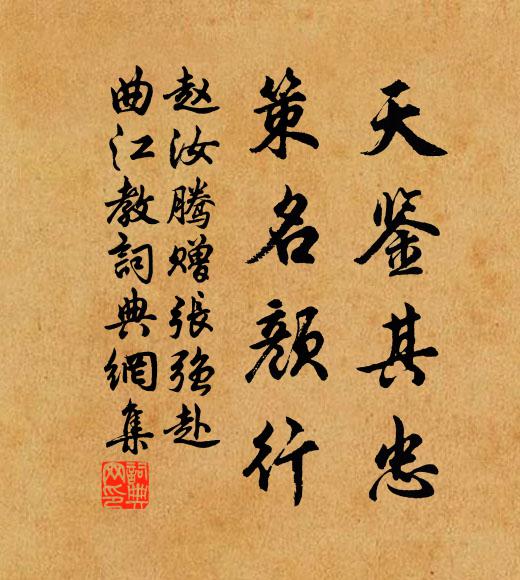 天鉴其忠
策名颜行
赵汝腾赠张强赴
曲江教詞典網集
詞典网印